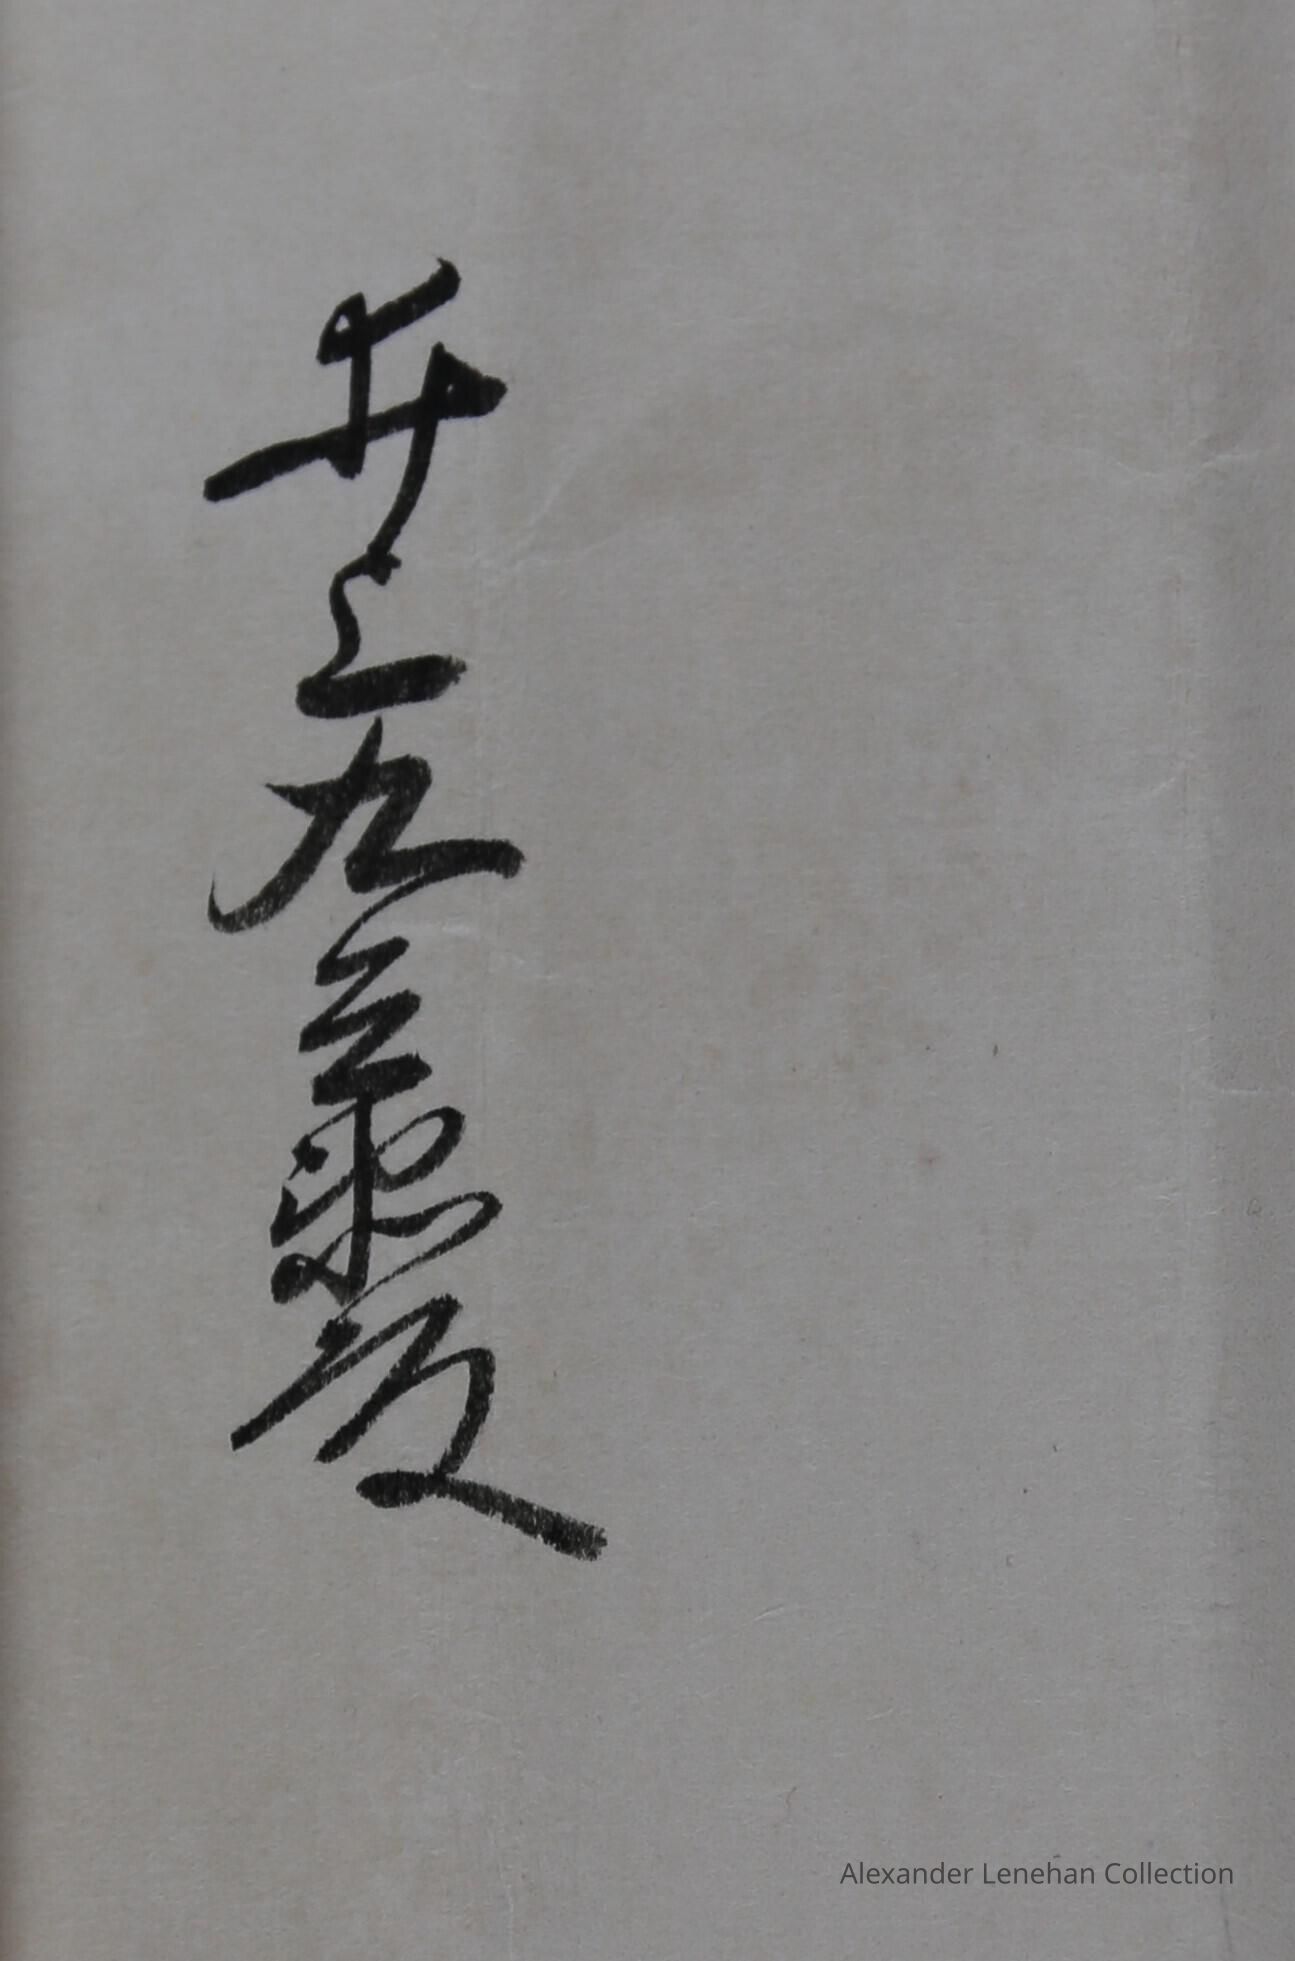 井上九三郎殿
Alexander Lenehan Collection